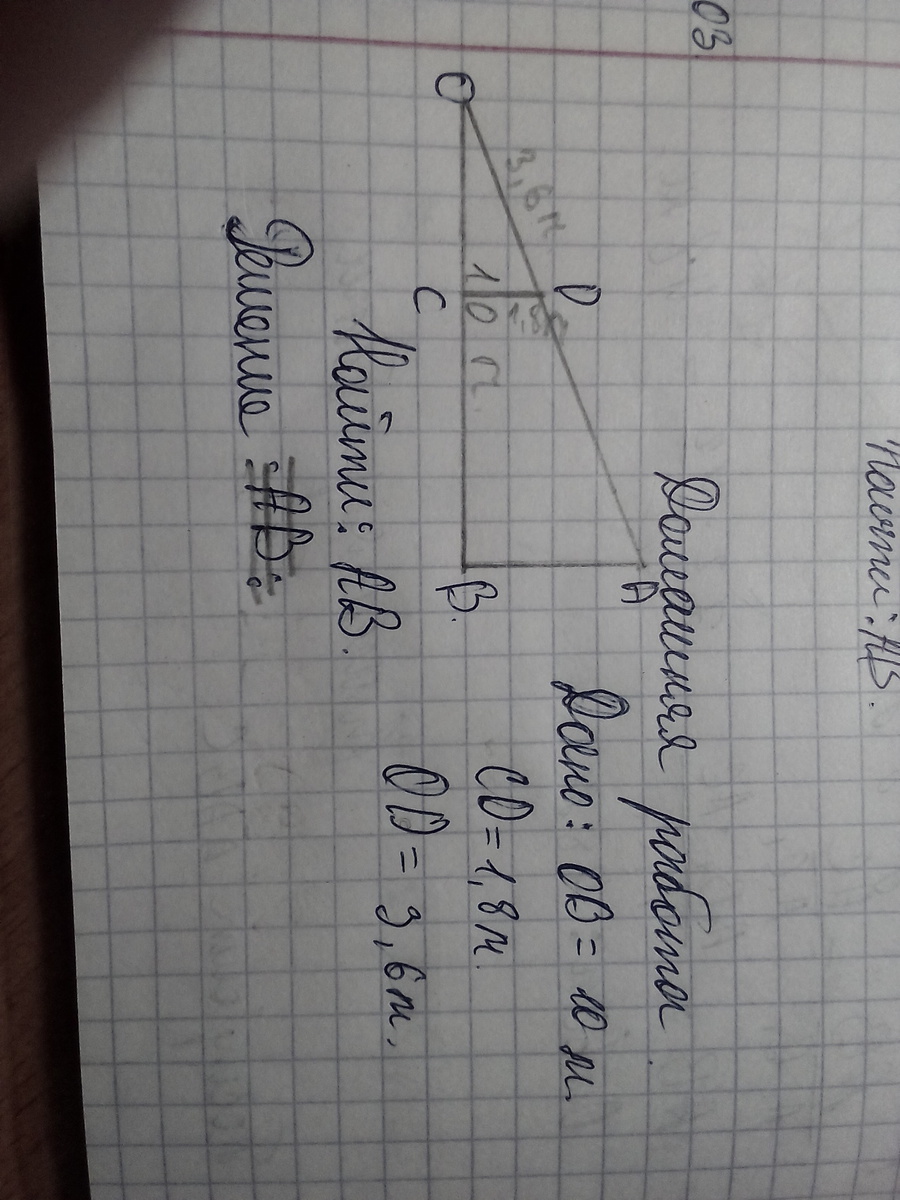 03.
Найти: AB.
Домашняя работа.
A
Дано: OB = 10 м
D
3,6 м
CD = 1,8 м.
O
10 м.
B.
C
OD = 3,6 м.
Найти: AB.
Решение: AB: